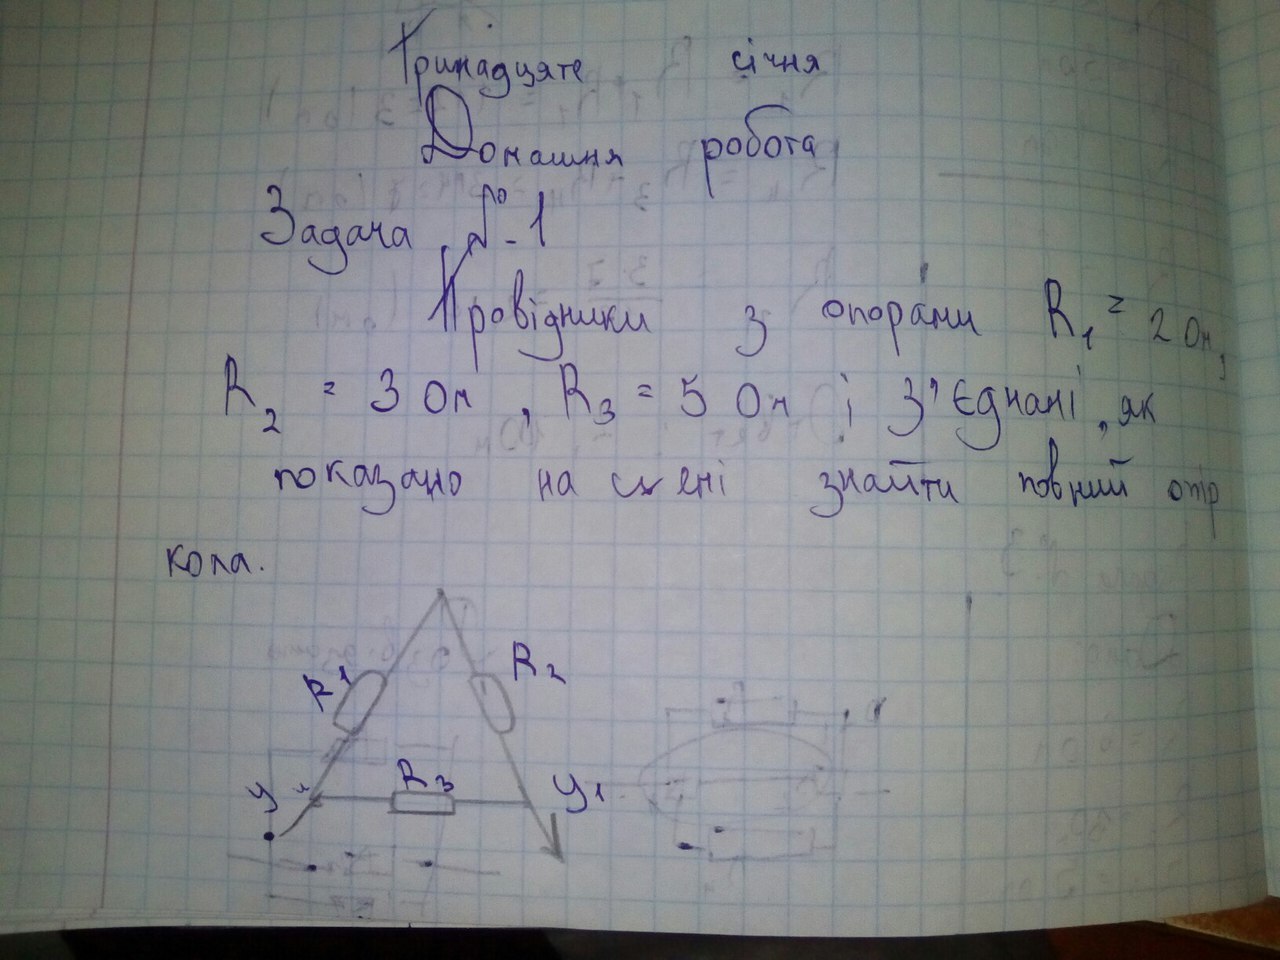 Тринадцяте січня
Домашня робота
Задача №1
Провідники з опорами R₁ = 2 Ом,
R₂ = 3 Ом, R₃ = 5 Ом і з'єднані, як
показано на схемі знайти повний опір
кола.
R1 R2
R3
У У₁